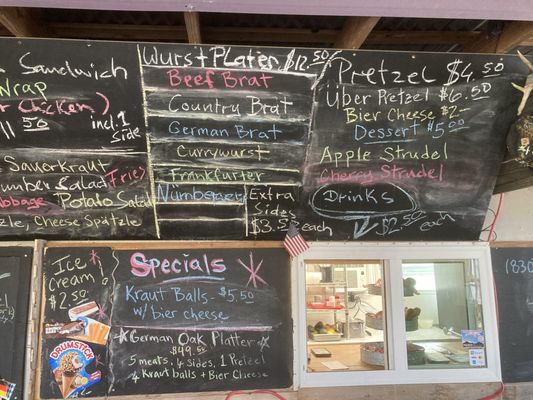 Sandwich
Wrap
Chicken)
.50
incl. 1
side
Sauerkraut
Salad
Fries
Potato Salad
Cheese Spätzle
Wurst Plater $12.50
Beef Brat
Country Brat
German Brat
Currywurst
Frankfurter
Nürnberger
Extra
Sides
$3.50 each
Pretzel $4.50
Über Pretzel $6.50
Bier Cheese $2-
Dessert $5.00
Apple Strudel
Cherry Strudel
Drinks
$2.50 each
Ice
Cream
$2.50
DRUMSTICK
Specials
Kraut Balls - $5.50
w/ bier cheese
German Oak Platter
$49.50
5 meats, 4 sides, 1 Pretzel
4 Kraut balls + Bier Cheese
(830